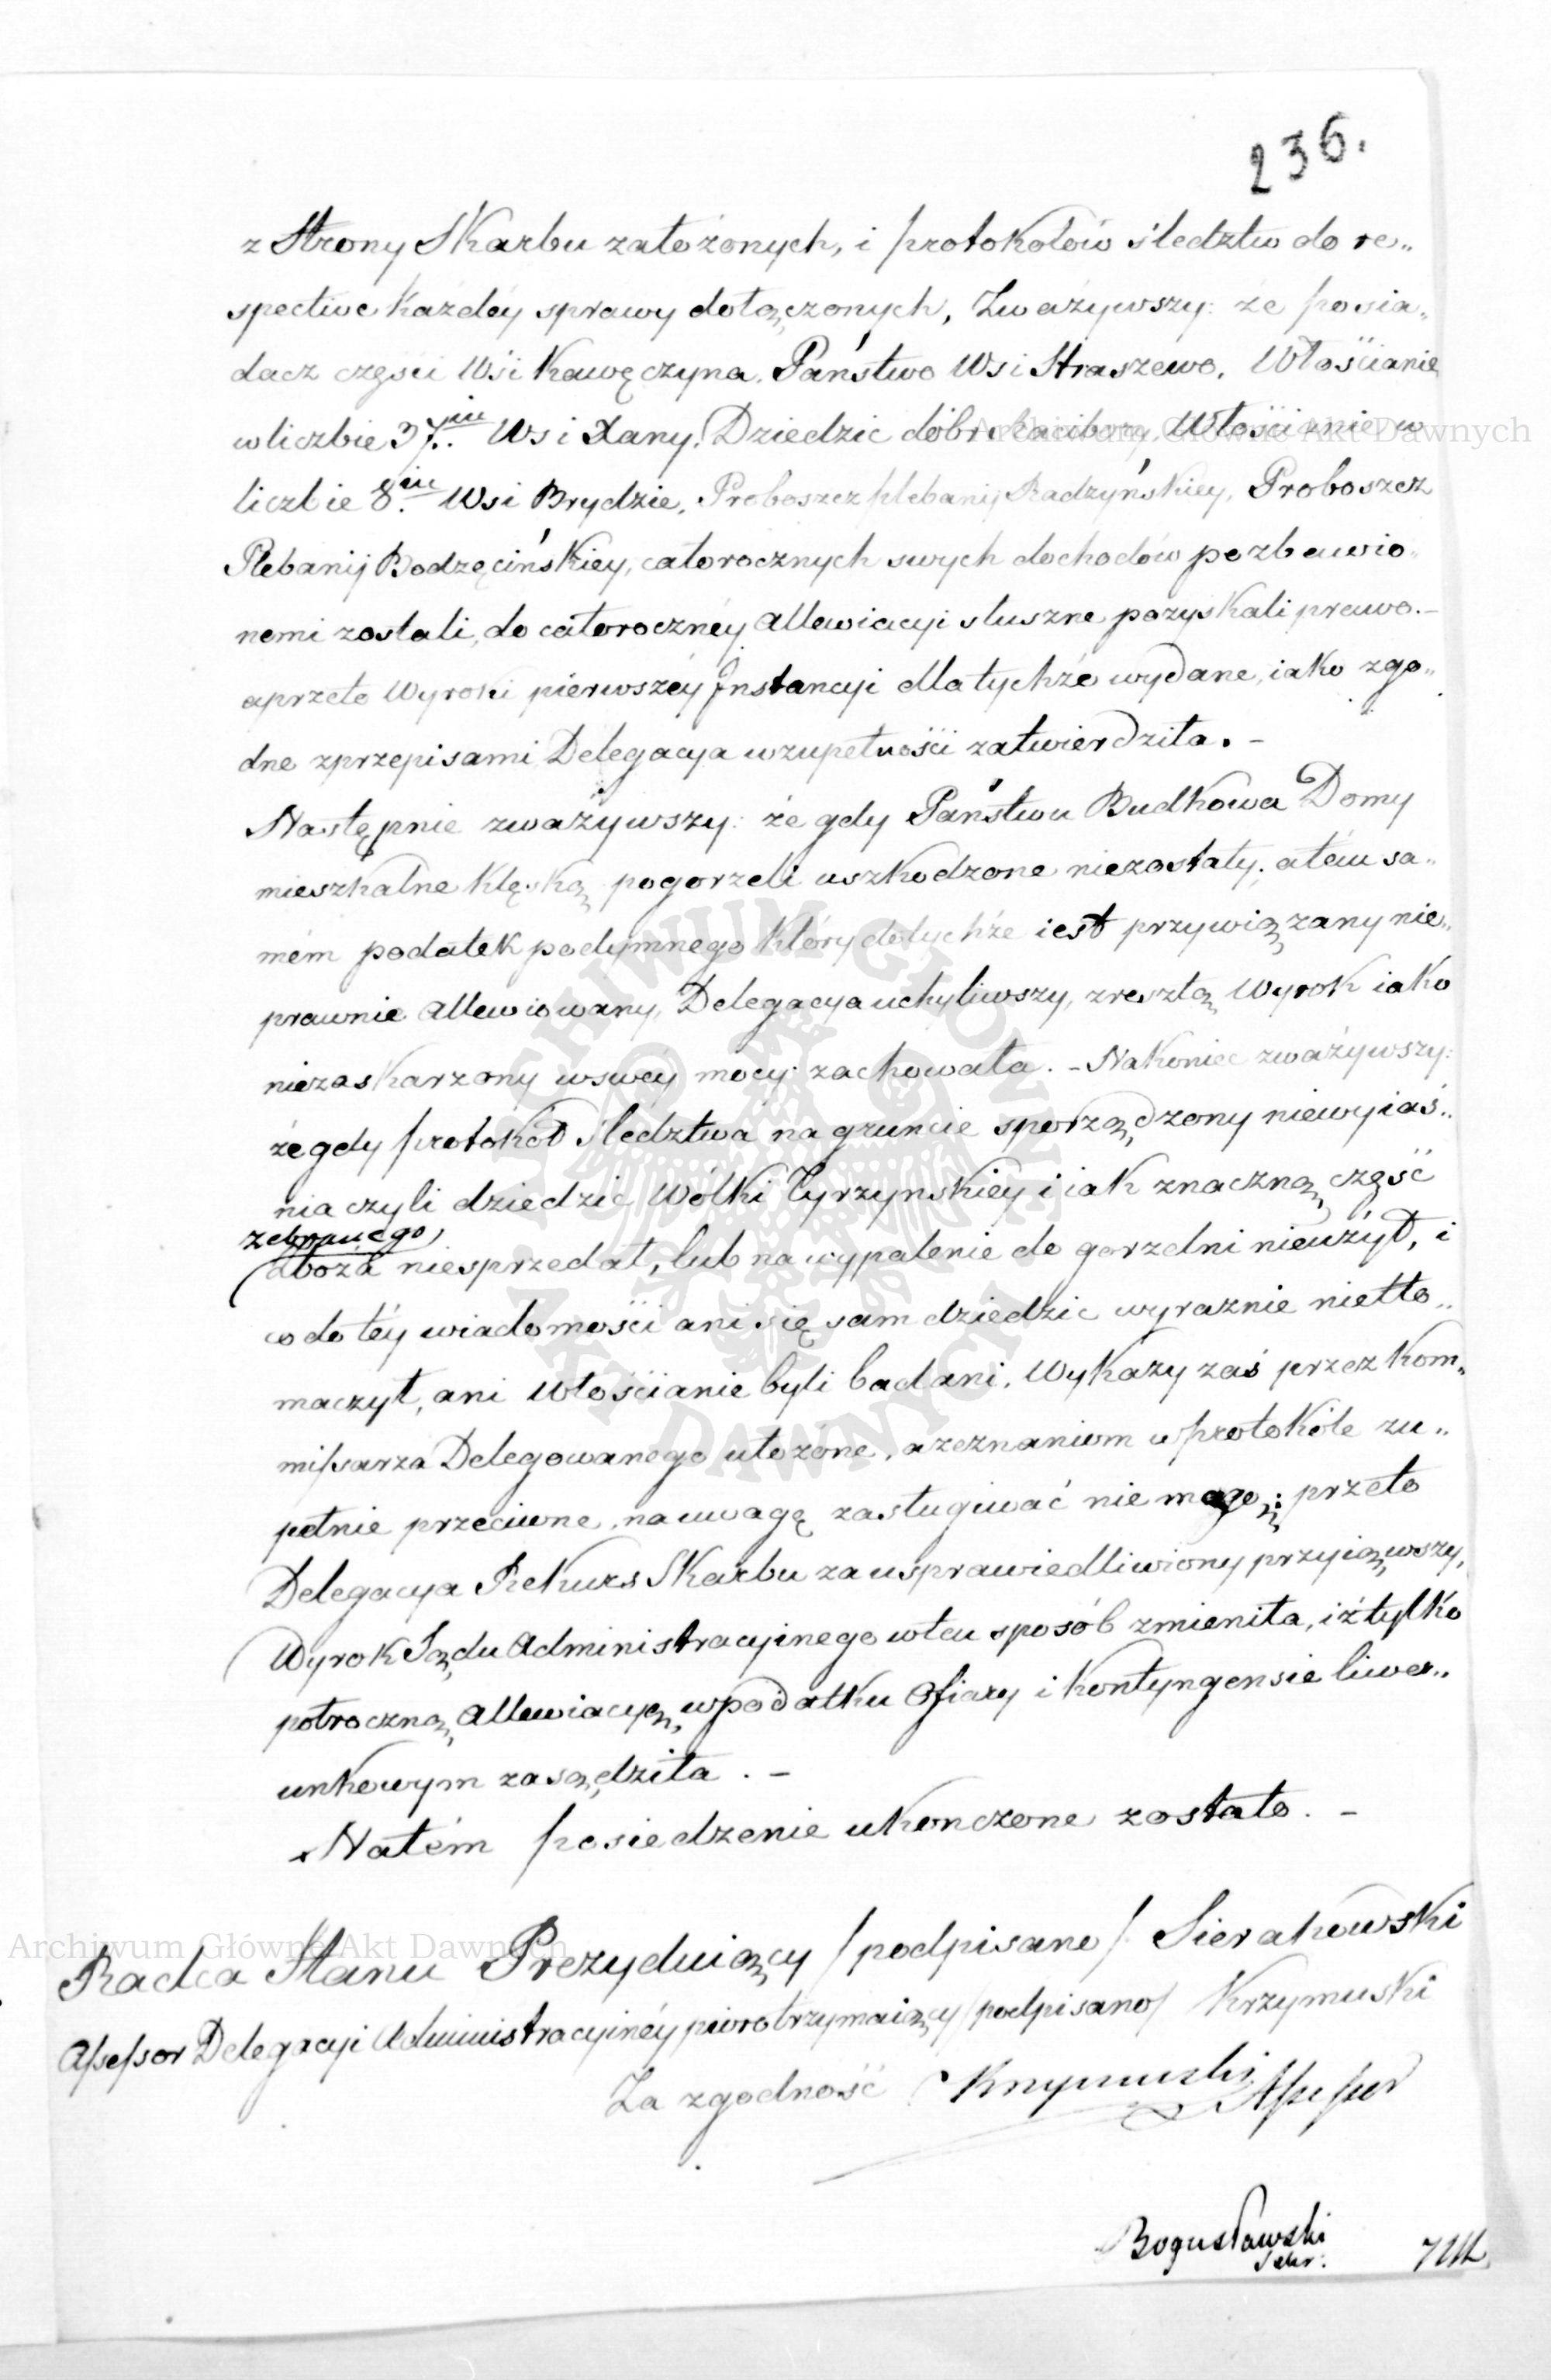 236.
z Strony Skarbu założonych, i protokołów śledztw do re„
spective każdéy sprawy dołączonych, Zważywszy: że posia„
dacz części Wsi Kawęczyna, Państwo Wsi Straszewo, Włościanie
w liczbie 37.iu Wsi Łany, Dziedzic dóbr Raciborz, Włościanie w
liczbie 8.iu Wsi Brydzie, Proboszcz plebanij Radzyńskiey, Proboszcz
Plebanij Bodzęcińskiey, całorocznych swych dochodów pozbawio„
nemi zostali, do całorocznéy allewiacyi słuszne pozyskali prawo. –
a przeto Wyroki pierwszéy Instancyi dla tychże wydane, iako zgo„
dne z przepisami Delegacya w zupełności zatwierdziła. –
Następnie zważywszy: że gdy Państwu Budkowa Domy
mieszkalne klęską pogorzeli uszkodzone niezostały, a tém sa„
mém podatek podymnego który do tychże iest przywiązany nie„
prawnie allewiowany, Delegacya uchyliwszy, zresztą Wyrok iako
niezaskarzony w swéy mocy zachowała. – Nakoniec zważywszy:
że gdy protokół śledztwa na gruncie sporządzony niewyiaś„
nia czyli dziedzic Wólki Zyrzynskiey i iak znaczną część
zebranego
zboża niesprzedał, lub na wypalenie do gorzelni nieużył, i
co do téy wiadomości ani się sam dziedzic wyraznie nietło„
maczył, ani Włościanie byli badani, Wykazy zaś przez Kom„
missarza Delegowanego ułożone, a zeznaniom w protokóle zu„
pełnie przeciwne, na uwagę zasługiwać nie mogą; przeto
Delegacya Rekurs Skarbu za usprawiedliwiony przyiąwszy,
Wyrok Sądu Administracyinego w ten sposób zmieniła, iż tylko
półroczną allewiacyą, w podatku Ofiary i Kontyngensie liwer„
unkowym zasądziła. –
Na tém posiedzenie ukonczone zostało. –
Radca Stanu Prezyduiący /podpisano/ Sierakowski
Assessor Delegacyi Administracyinéy pioro trzymaiący /podpisano/ Krzymuski
Za zgodność Krzymuski Assessor
Bogusławski
Sekr.
Archiwum Główne Akt Dawnych
Archiwum Główne Akt Dawnych
ARCHIWUM GŁÓWNE
AKT DAWNYCH